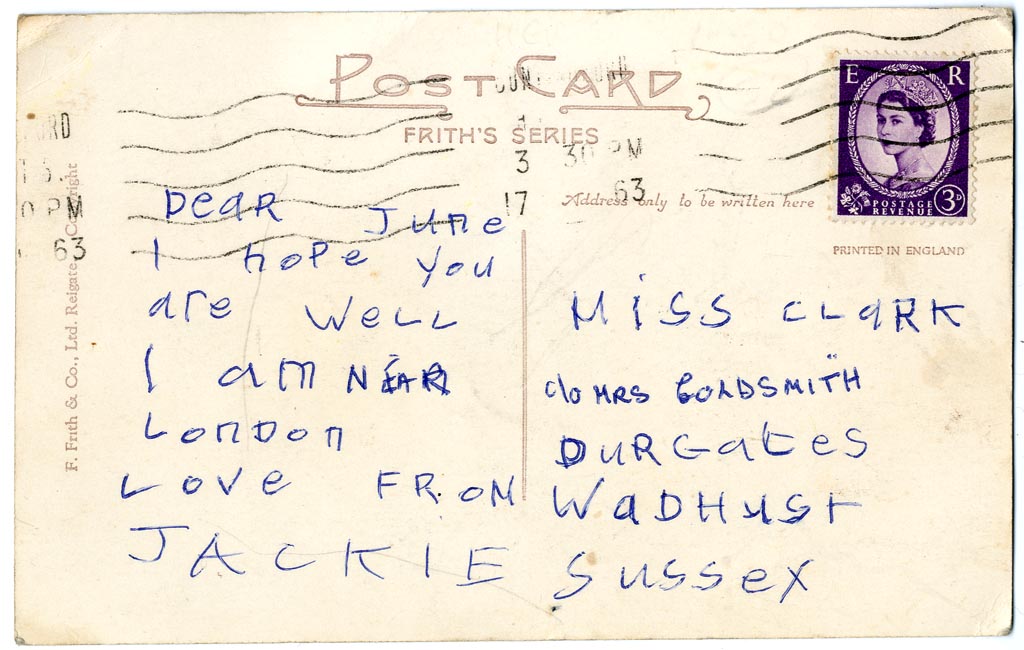 POST CARD
FRITH'S SERIES
3 30 PM
17 63
0 PM
63
Address only to be written here
E R
POSTAGE
REVENUE 3D
PRINTED IN ENGLAND
F. Frith & Co., Ltd. Reigate
Dear June
I hope you
are well
I am NEAR
London
Love FROM
JACKIE
Miss CLaRK
c/o MRS GOLDSMITH
DuRGates
WaDHust
Sussex